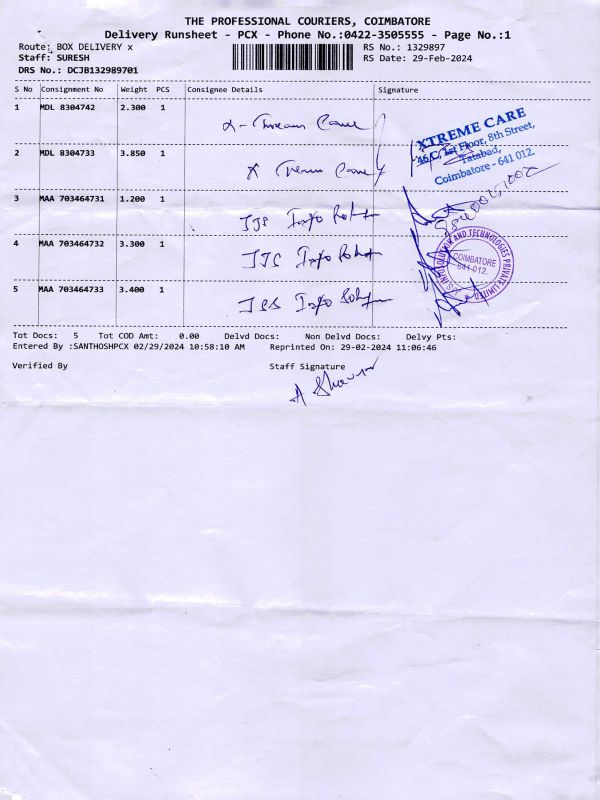 THE PROFESSIONAL COURIERS, COIMBATORE
Delivery Runsheet - PCX - Phone No.:0422-3505555 - Page No.:1
Route: BOX DELIVERY x RS No.: 1329897
Staff: SURESH RS Date: 29-Feb-2024
DRS No.: DCJB132989701
S No Consignment No Weight PCS Consignee Details Signature
1 MDL 8304742 2.300 1
XTREME CARE
46/C, 1st Floor, 8th Street,
Tatabad,
Coimbatore - 641 012.
2 MDL 8304733 3.850 1
3 MAA 703464731 1.200 1 Info
4 MAA 703464732 3.300 1 Info
COIMBATORE
641 012.
AND TECHNOLOGIES PRIVATE LIMITED
5 MAA 703464733 3.400 1 Info
Tot Docs: 5 Tot COD Amt: 0.00 Delvd Docs: Non Delvd Docs: Delvy Pts:
Entered By :SANTHOSHPCX 02/29/2024 10:58:10 AM Reprinted On: 29-02-2024 11:06:46
Verified By Staff Signature